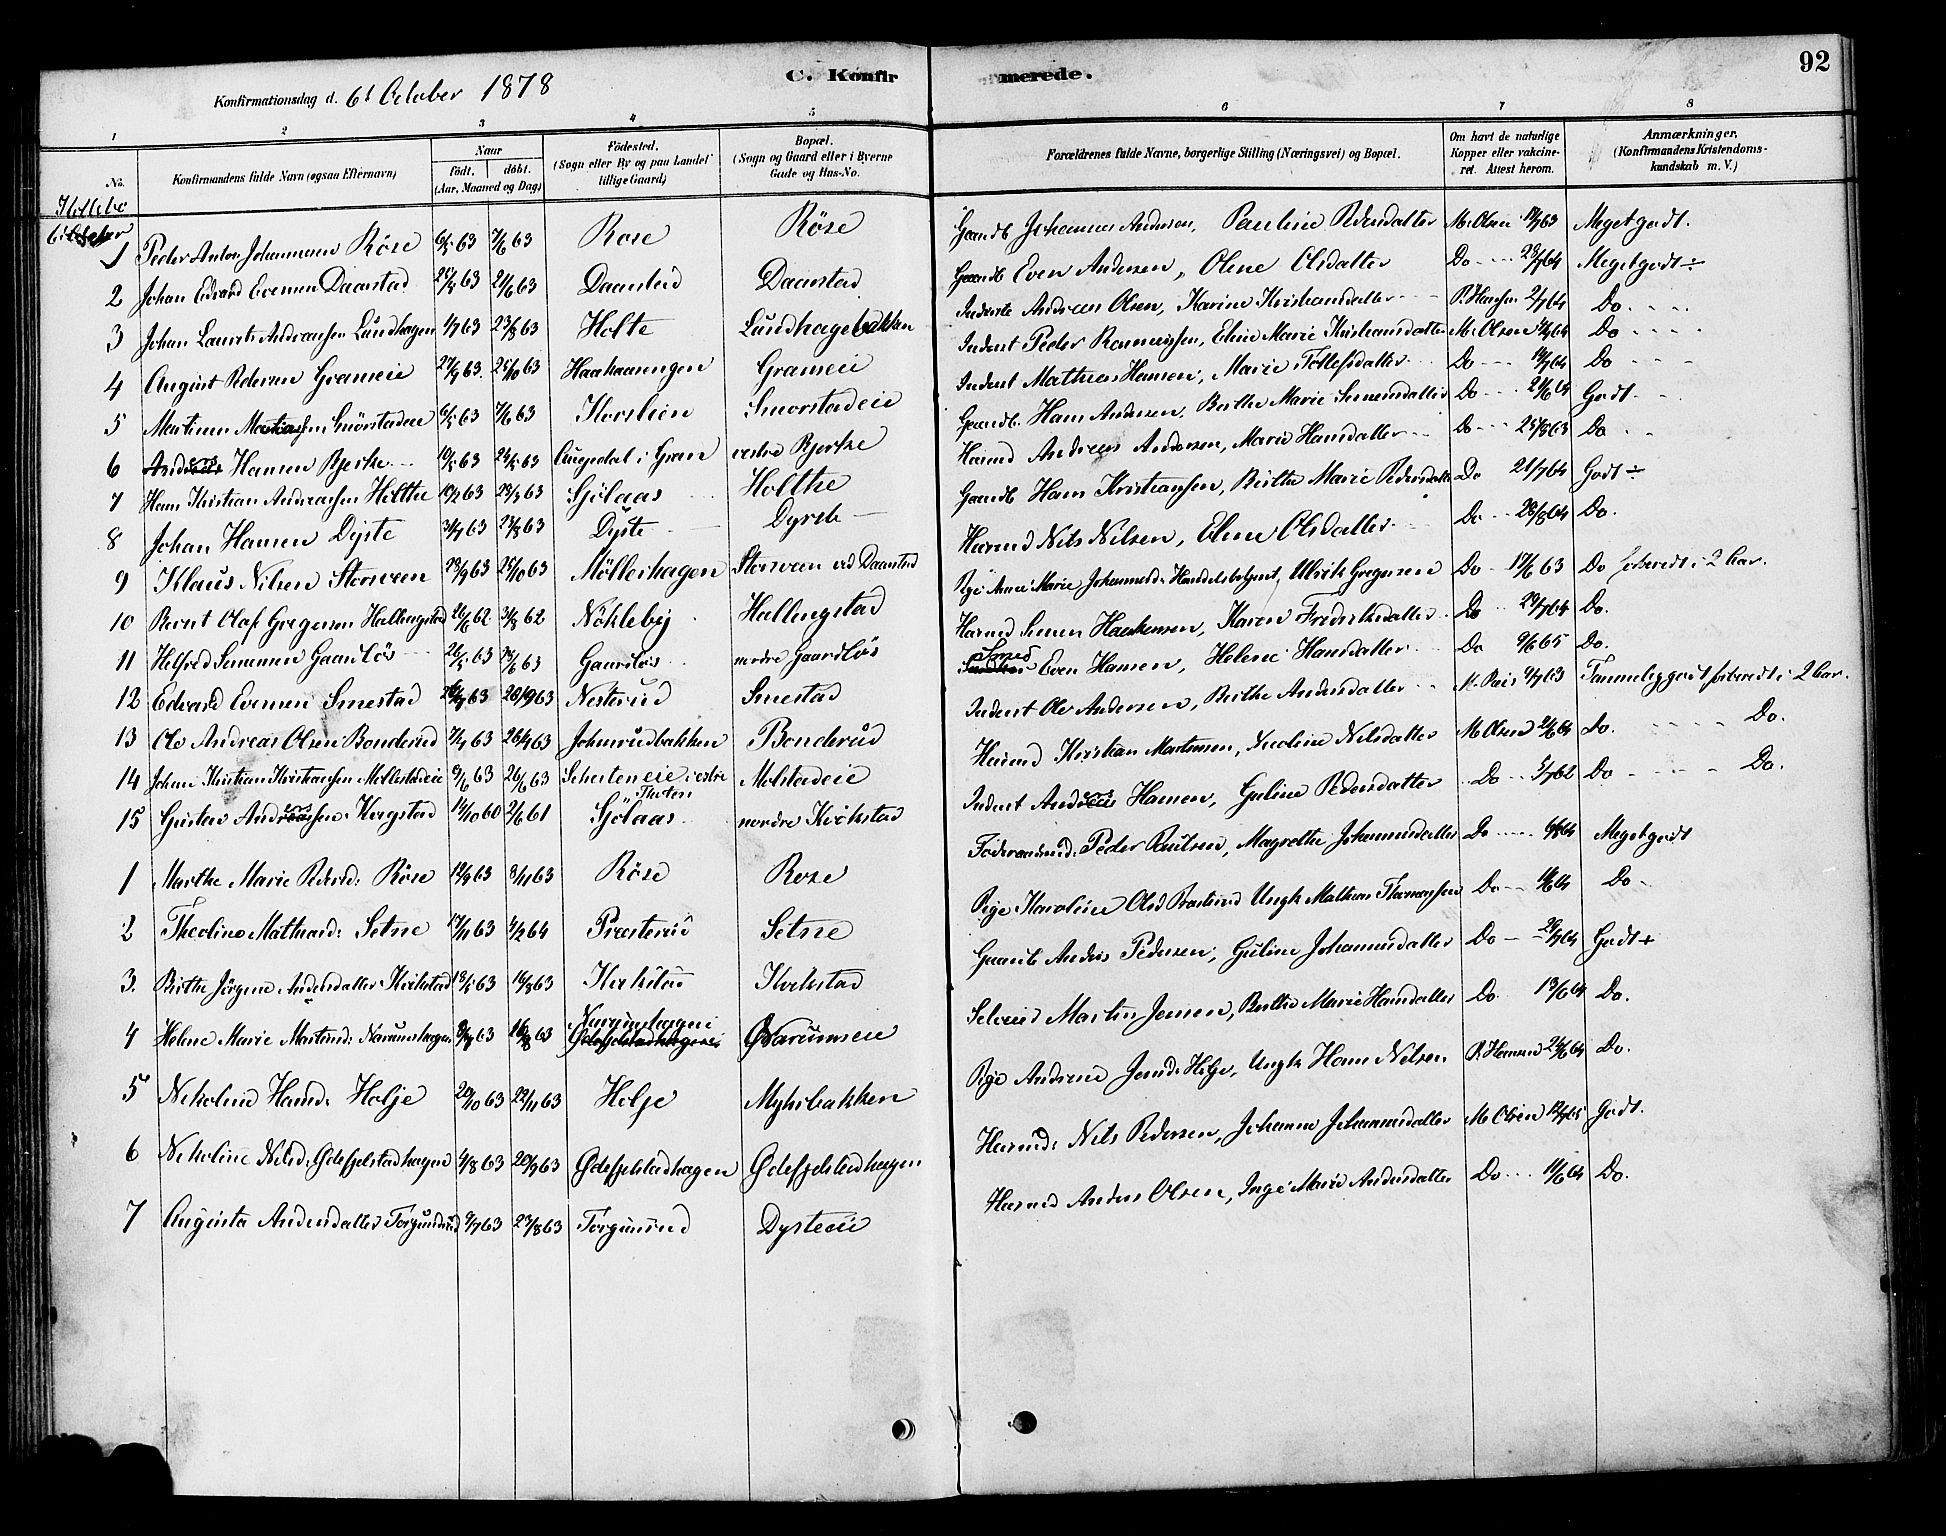 C. Konfirmerede.
92
Konfirmationsdag d. 6t October 1878
1 2 3 4 5 6 7 8
No.
Konfirmandens fulde Navn (ogsaa Efternavn)
Naar
födt. döbt.
(Aar, Maaned og Dag)
Födested.
(Sogn eller By og paa Landet tillige Gaard)
Bopæl.
(Sogn og Gaard eller i Byerne Gade og Hus-No.
Forældrenes fulde Navne, borgerlige Stilling (Næringsvei) og Bopæl.
Om havt de naturlige Kopper eller vakcineret. Attest herom.
Anmærkninger.
(Konfirmandens Kristendomskundskab m. V.)
1 Peder Anton Johannesen Röse 6/5 63 7/6 63 Rose Röse Gaardb Johannes Andersen, Pauline Pedersdatter M. Olsen 63 Meget godt.
2 Johan Edvard Evensen Daanstad 63 21/6 63 Daanstad Daanstad Gaardb Even Andersen, Olene Olsdatter Do 64 Meget godt ÷
3 Johan Laurits Andreassen Lundhagen 1/7 63 23/8 63 Holte Lundhagebakken Inderste Andreas Olsen, Karine Kristiansdatter P. Hansen 2/7 64 Do
4 August Pedersen Grameie 27/9 63. 25/10 63 Haakaarungen Grameie Inderst Peder Rasmussen, Eline Marie Kristiansdatter M. Olsen 64 Do
5 Martinus Mathiasen Smörstadeie 6/5 63 7/6 63 Korslien Smorstadeie Inderst Mathias Hansen, Marie Tollefsdatter Do 64 Do
6 Anders Hansen Bjerke 10/5 63 24/5 63 Augedal i Gran vestre Bjerke Gaardb. Hans Andersen, Berthe Marie Simensdatter Do 64 Godt
7 Hans Kristian Andreassen Holthe 63 29/3 63 Sjölaas Holthe Huusmd Andreas Andersen, Marie Hansdatter Do 25/8 63 Do
8 Johan Hansen Dyste 3/7 63 23/8 63 Dyste Dyste Gaardb Hans Kristiansen, Berthe Marie Pedersdatter Do 21/7 64 Godt ÷
9 Klaus Nilsen Storsveen 23/9 63 25/10 63 Möllerhagen Storsveen ved Daanstad Huusmd Nils Nilsen, Eline Olsdatter Do 28/8 64 Do.
10 Bernt Olaf Gregersen Hallingstad 62 3/8 62 Nökleby Hallingstad Pige Anne Marie Johannesd: Handelsbetjent, Ulrik Gregersen Do 17/6 63 Do i 2 Aar.
11 Helfred Simensen Gaardlös 26/5 63 63 Gaardlös nordre Gaardlös Huusmd Simen Haakensen, Karen Fredriksdatter Do 29/7 64 Do.
12 Edvard Evensen Smestad 63 20/9 63 Nesterud Smestad Smed Even Hansen, Helene Hansdatter Do 9/6 65 Do.
13 Ole Andreas Olsen Bonderud 7/7 63 63 Johnsrudbakken Bonderud Inderst Ole Andersen, Berthe Andersdatter 9/7 63 Temmelig godt i 2 Aar.
14 Johan Kristian Kristiansen Mollestadeie 9/5 63 26/5 63 Schusteneie i østre Thoten Molstadeie Huusmd Kristian Martinsen, Nicoline Nilsdatter M. Olsen 64 Do. Do.
15 Gustav Andersen Kvigstad 14/10 60 2/6 61 Sjölaas nordre Kvikstad Inderst Anders Hansen, Guline Pedersdatter Do 5/7 62 Do Do.
1 Marthe Marie Pedersd: Röse 12/9 63 8/11 63 Röse Rose Föderaadsmd: Peder Paulsen, Magrethe Johannesdatter Do 64 Meget godt
2 Theoline Mathiasd: Setne 17/11 63 4/2 64 Presterud Setne Pige Karoline Olsd Ungk Mathias Thomassen Do 64 Do
3. Berthe Jörgine Andersdatter Kvikstad 13/5 63 16/8 63 Kvikstad Kvikstad Gaardb Anders Pedersen, Guline Johannesdatter Do 64 Godt +
4 Helene Marie Martinsd: Narumshagen 63 16/8 63 Narumhagen Narumseie Selveird Martin Jensen, Berthe Marie Hansdatter Do 13/6 64 Do.
5 Nikoline Hansd: Holje 20/10 63 22/11 63 Holje Myhrbakken Pige Andrine Jensd: Helje, Ungk Hans Nilsen P. Hansen 24/6 64 Do.
6 Nikoline Nilsd: Ødefjelstadhagen 4/8 63 20/9 63 Ødefjelstadhagen Ødefjelstadhagen Huusmd: Nils Pedersen, Johanne Johannesdatter M. Olsen 65 Godt.
7 Augusta Andersdatter Torgunsrud 9/7 63 23/8 63 Torgunsrud Dysteeie Huusmd Anders Olsen, Inge Marie Andersdatter Do 11/6 64 Do.